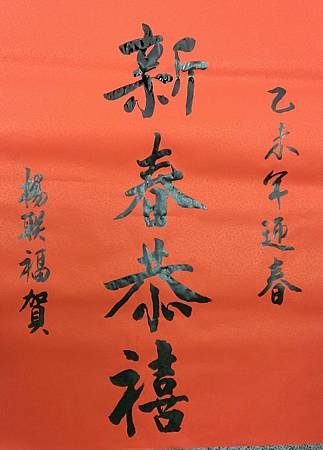 乙未年迎春
新春恭禧
楊联福賀